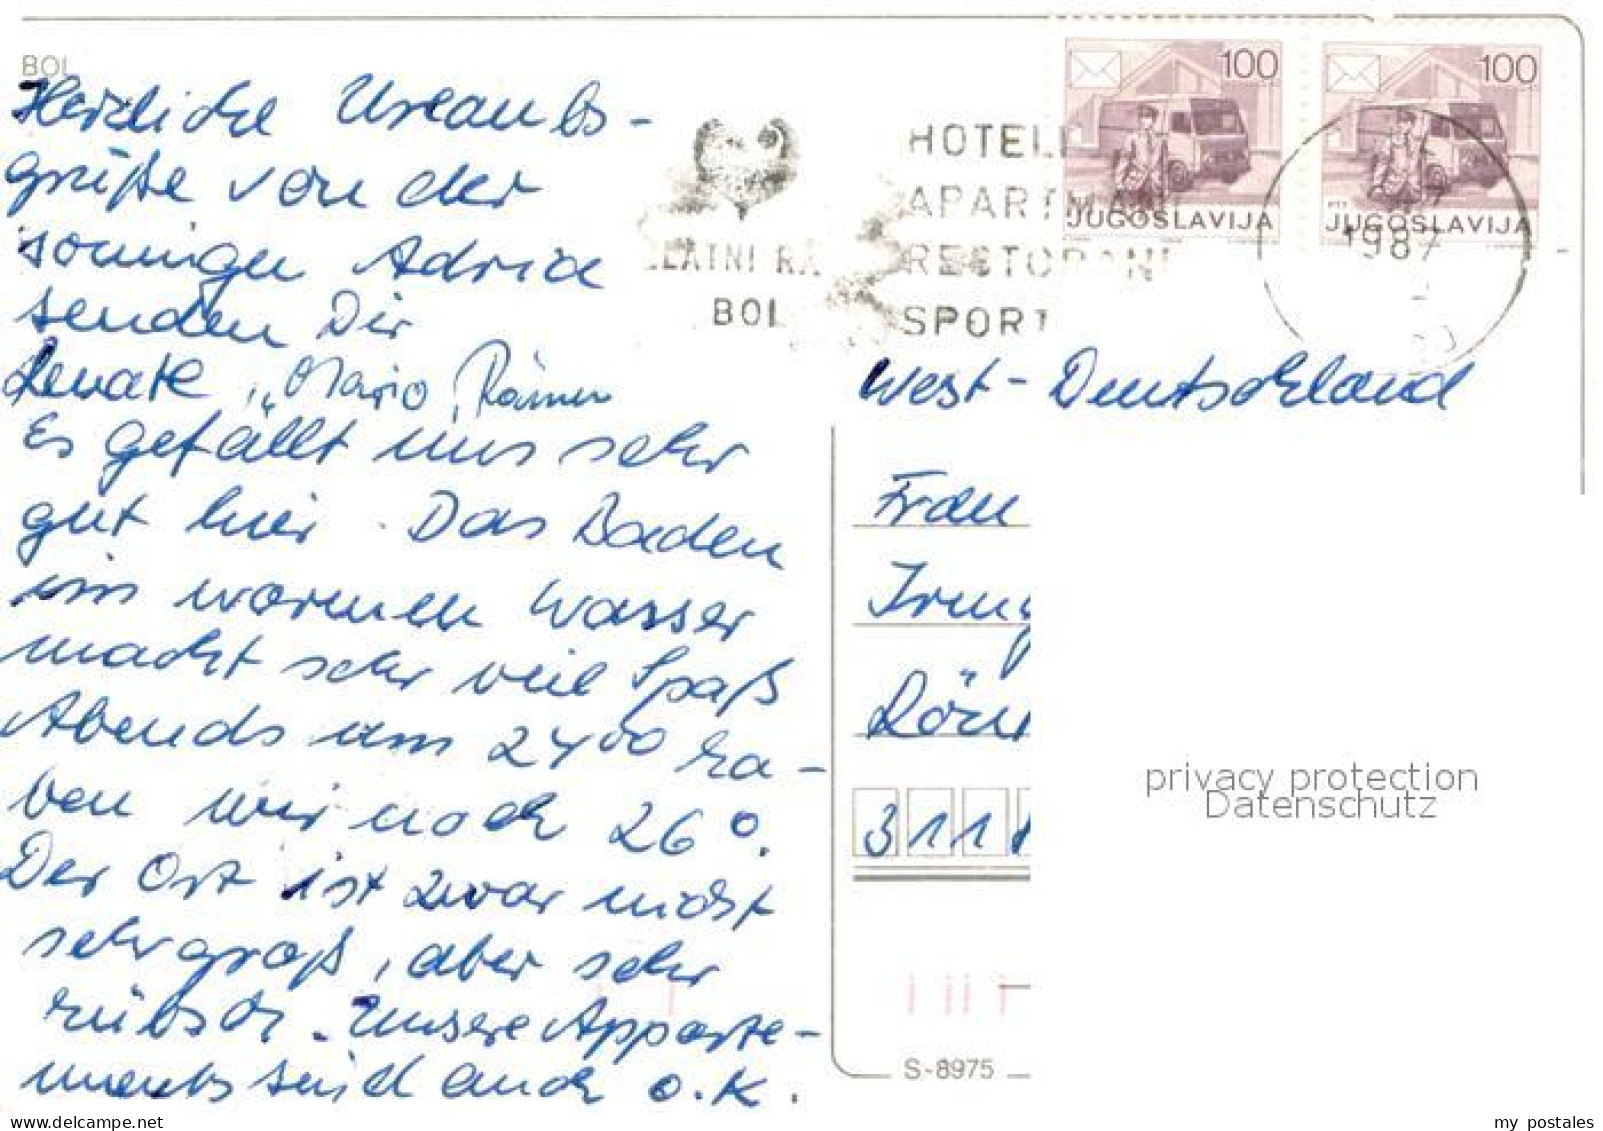 BOL
Herzliche Urlaubs-
grüße von der
sonnigen Adria
senden Dir
Renate, Mario,
Es gefällt uns sehr
gut hier. Das Baden
im warmen Wasser
macht sehr viel Spaß
Abends um 24 00 ha-
ben wir noch 26°.
Der Ort ist zwar nicht
sehr groß, aber sehr
hübsch. Unsere Apparte-
ments sind auch o.K.
ZLATNI RA
BOL
HOTELI
APARTMA
RESTORANI
SPORT
100
JUGOSLAVIJA
100
JUGOSLAVIJA
1987
West-Deutschland
Frau
Irmg
311
privacy protection
Datenschutz
S-8975
my postales